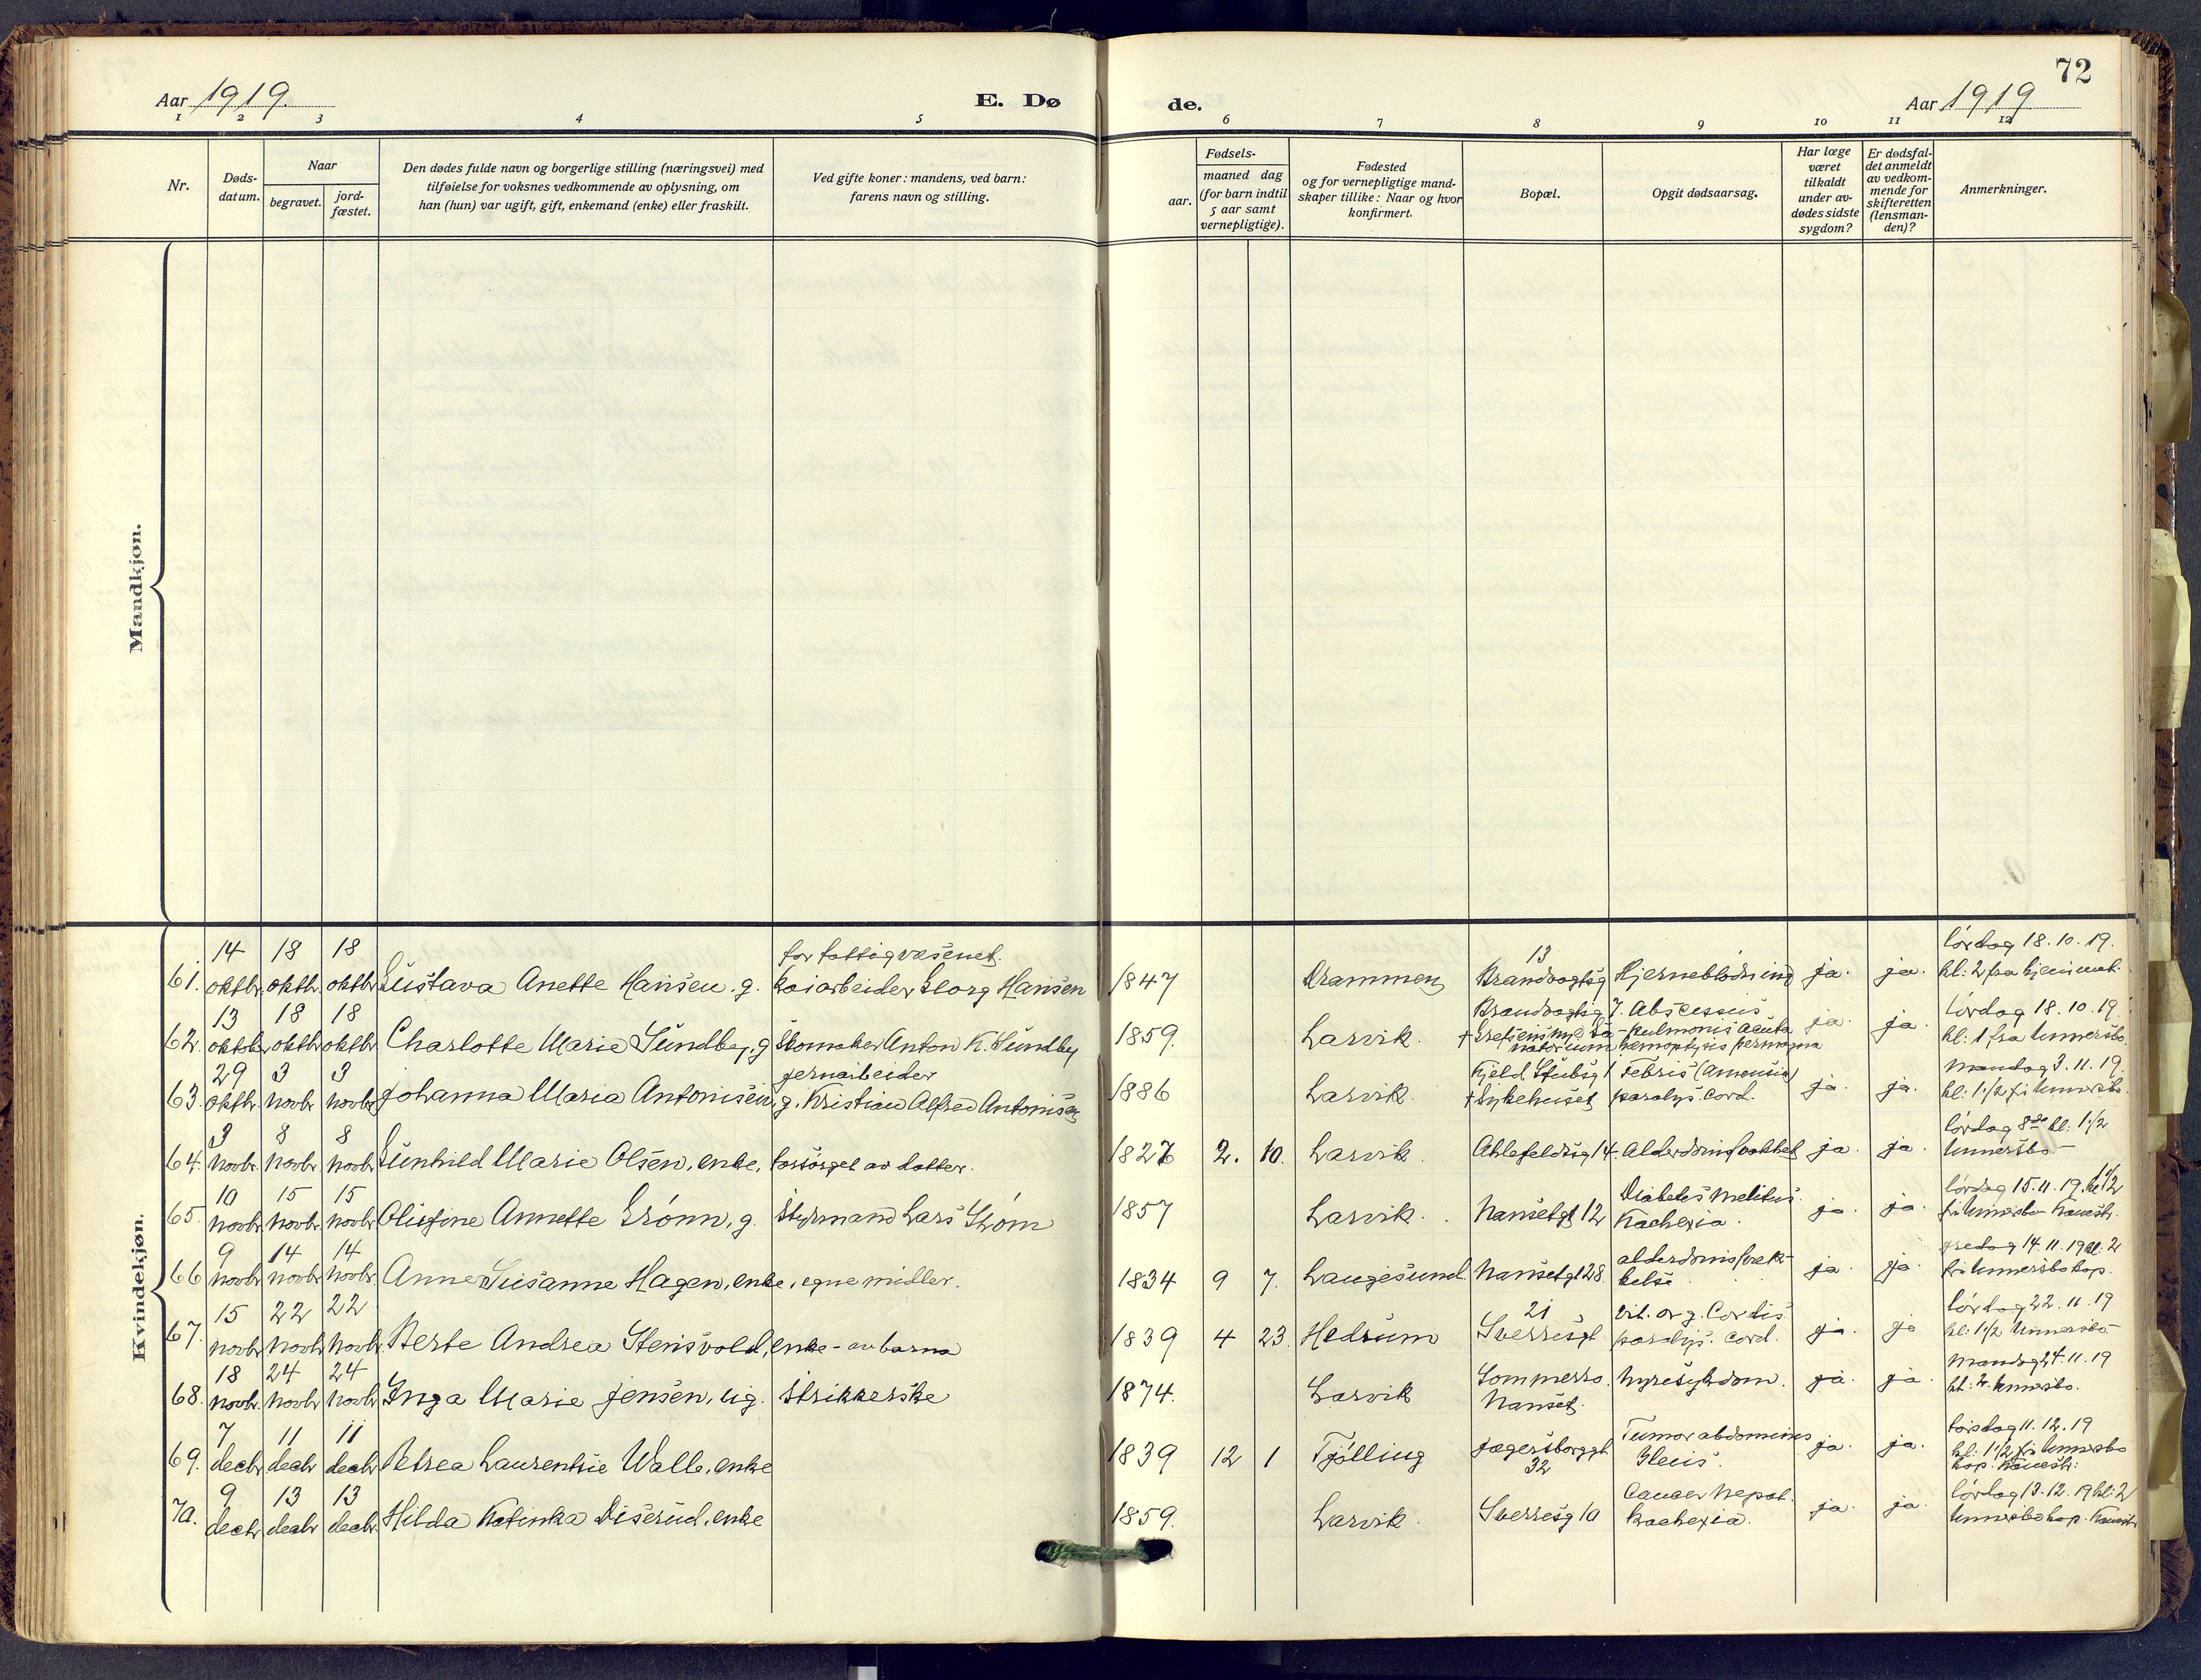 72
Aar 1919.
E. Dø
de.
Aar 1919
1 2 3 4 5 6 7 8 9 10 11 12
Nr.
Døds-
datum.
Naar
begravet.
jord-
fæstet.
Den dødes fulde navn og borgerlige stilling (næringsvei) med
tilføielse for voksnes vedkommende av oplysning, om
han (hun) var ugift, gift, enkemand (enke) eller fraskilt.
Ved gifte koner: mandens, ved barn:
farens navn og stilling.
Fødsels-
aar.
maaned dag
(for barn indtil
5 aar samt
vernepligtige).
Fødested
og for vernepligtige mand-
skaper tillike: Naar og hvor
konfirmert.
Bopæl.
Opgit dødsaarsag.
Har læge
været
tilkaldt
under av-
dødes sidste
sygdom?
Er dødsfal-
det anmeldt
av vedkom-
mende for
skifteretten
(lensman-
den)?
Anmerkninger.
Mandkjøn.
Kvindekjøn.
14 18 18 for fattigvæsenet. 13 lördag 18.10.19.
61. oktbr. oktbr. oktbr. Gustava Anette Hansen. g. Kaiarbeider Georg Hansen 1847 Drammen Brandvogtsg Hjerneblödning ja. ja. kl: 2 fra hjemmet.
13 18 18 Brandvogtsg 7. Abscessus lördag 18.10.19.
62. oktbr oktbr oktbr Charlotte Marie Sundby, g skomaker Anton K. Sundby 1859. Larvik. + Grefsens nye Sa- natorium pulmonis acuta hemoptysis permagna ja. ja. kl: 1 fra Unnersbo.
29 3 3 jernarbeider Kjeld Stubsg 1 Febris (Amensia) mandag 3.11.19.
63. oktbr. novbr novbr Johanna Maria Antonisen, g. Kristian Alfred Antonisen 1886 Larvik. + Sykehuset paralys. cord. ja. ja. kl: 1 1/2 fr Unnersbo.
3 8 8 lördag 8de kl: 1 1/2
64. novbr. novbr novbr Gunhild Marie Olsen, enke, forsörget av datter. 1827 2. 10. Larvik Ahlefeldtsg 14. Alderdomssvakhet ja. ja. Unnersbo.
10 15 15 Diabetes melitus. lördag 15.11.19. kl 1/2
65. novbr novbr novbr Olufine Annette Grönn, g. styrmand Lars Ström 1857 Larvik. Nansetgt 12 Kachexia. ja. ja. fr Unnersbo
9 14 14 alderdomssvek- fredag 14.11.19 kl: 2
66 novbr novbr novbr. Anne Susanne Hagen, enke, egne midler. 1834 9 7. Langesund Nansetgt 28. kelse ja. ja. fr Unnersbo kap.
15 22 22 21 Vit. org. Cordis lördag 22.11.19
67. novbr novbr novbr. Berte Andrea Stensvold, enke - av barna 1839 4 23. Hedrum Sverresgt paralys. cord. ja. ja kl: 1 1/2 Unnersbo
18 24 24 Sommerro. mandag 24.11.19
68. novbr. novbr novbr Inga Marie Jensen, ug. strikkerske 1874. Larvik Nanset. Nyresykdom. ja. ja. kl: 2. Unnersbo.
7 11 11 Tumor abdominis torsdag 11.12.19
69. decbr decbr decbr Petrea Laurentsie Walle, enke 1839 12 1 Tjölling Jegersborggt 32 Ileus. ja. ja. kl: 1 1/2 fr Unnersbo kap.
9 13 13 Cancer hepat. lördag 13.12.19 kl: 2
70. decbr decbr decbr. Hilda Katinka Diserud, enke 1859. Larvik. Sverresg 10 Kachexia. ja. ja. Unnersbo kap.